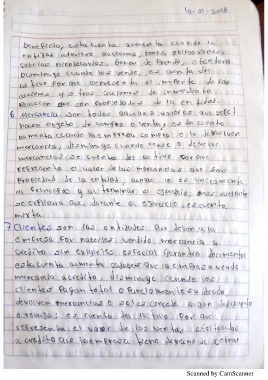 19-01-2018
beneficio, esta cuenta aumenta cuando la
entidad adquiere acciones, bonos, obligaciones
cedulas hipotecarias, bonos de fondo, etcétera
Disminuye cuando los vende, es cuenta del
activo por que representa el importe de las
acciones y otras acciones de inversión
que son propiedades de la entidad.
6 Mercancía son todos aquellos valores que se
hacen objeto de compra o venta, esta cuenta
aumenta cuando la empresa compra o le devuelven
mercancía, disminuye cuando vende o devuelve
mercancías es cuenta del activo por que
representa el valor de las mercancías que son
propiedad de la entidad, aunque lo es únicamente
al principio y al terminar el ejercicio, más adelante
se explicara que durante el ejercicio es cuenta
mixta.
7 Clientes son las entidades que deben a la
empresa por haberles vendido mercancía a
crédito sin exigirles especial garantía documental
esta cuenta aumenta cada vez que la empresa vende
mercancía a crédito, disminuye cuando los
clientes pagan total o parcialmente es deuda
devuelven mercancías o se les concede algún descuento
o rebaja es cuenta del Activo Por que
representa el valor de las ventas efectuadas
a crédito que la empresa tiene derecho de cobrar
Scanned by CamScanner